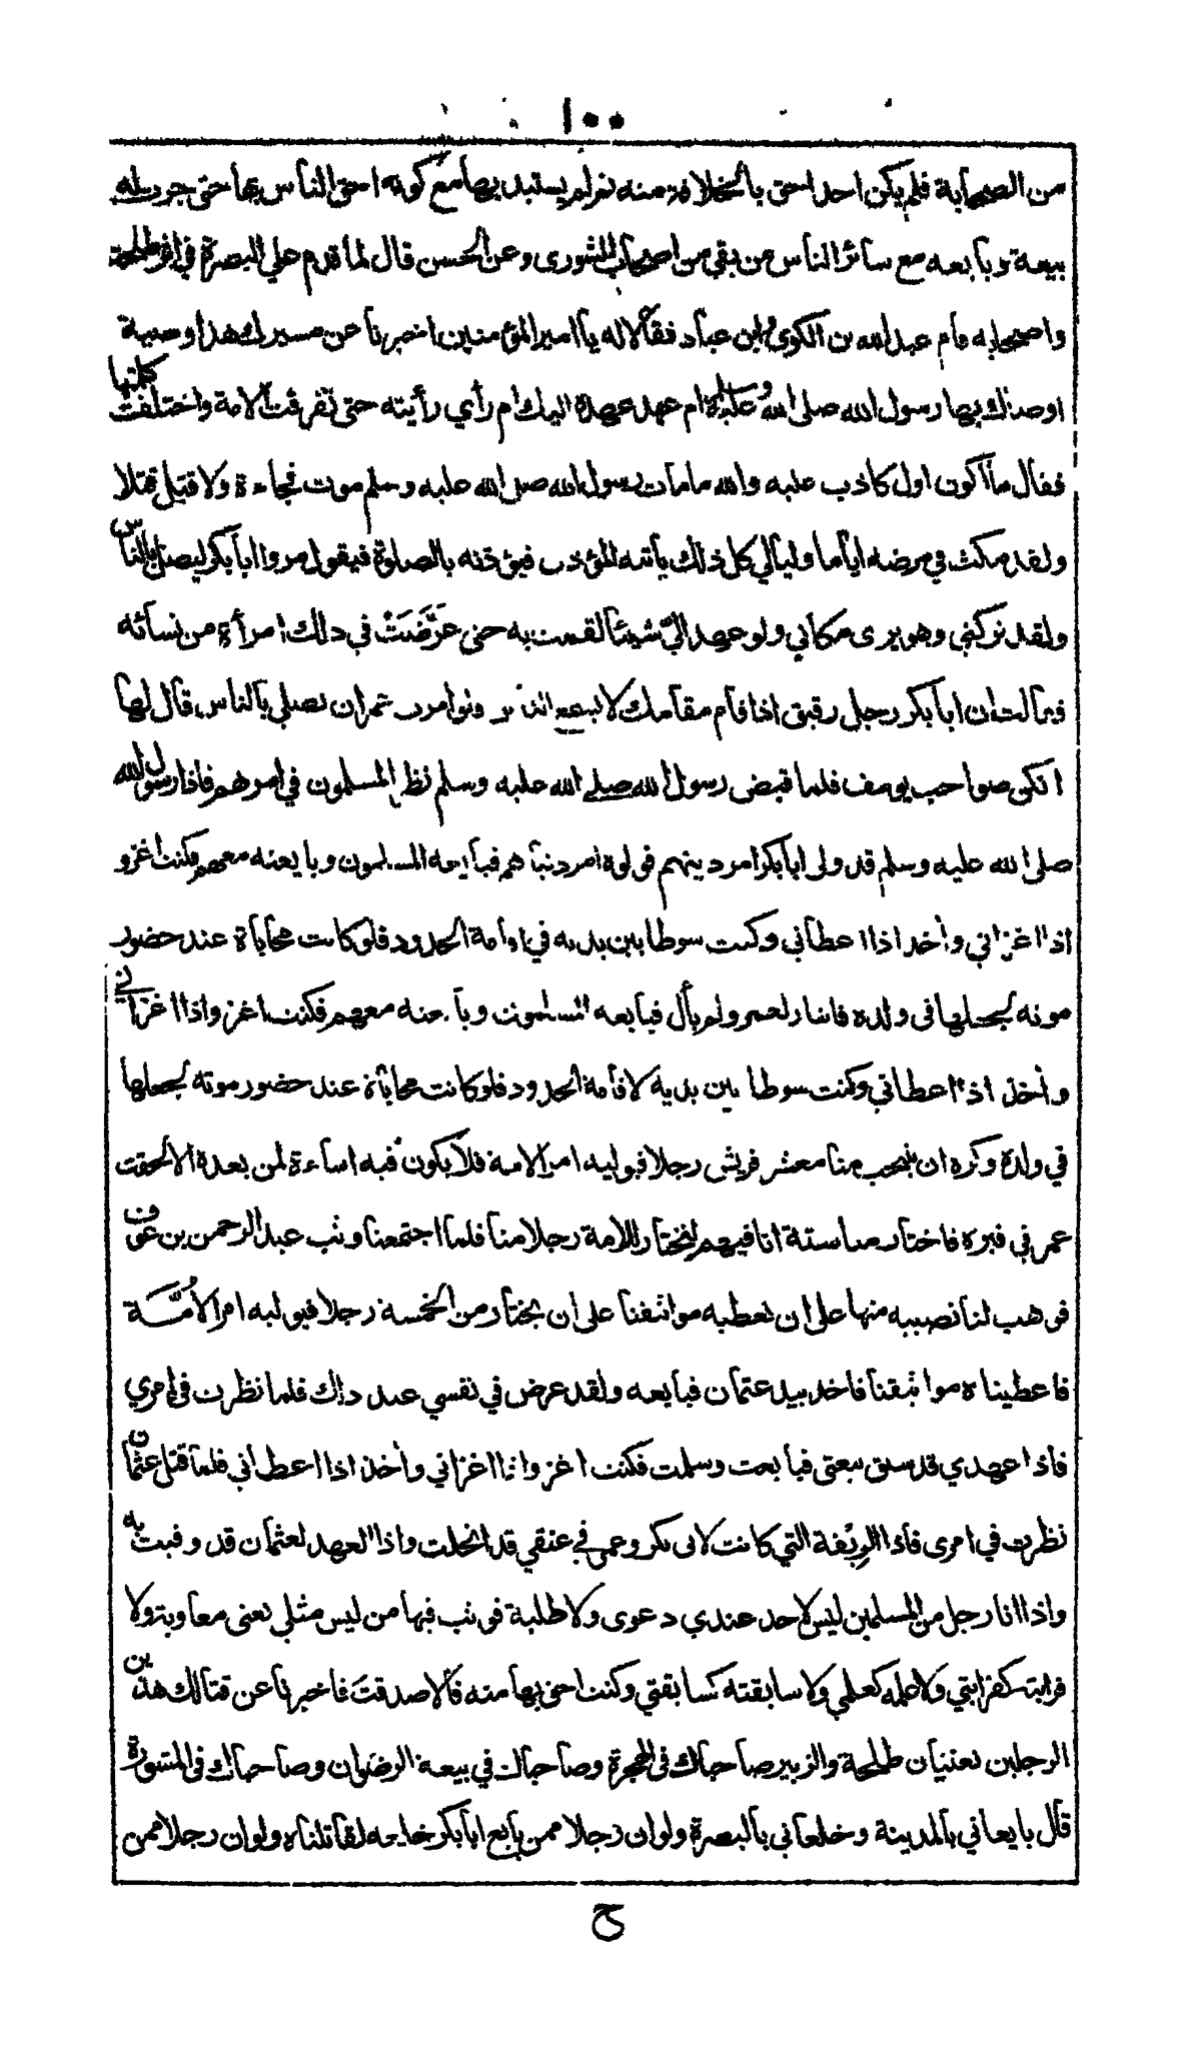 ١٠٠
من الصحابة فلم يكن احدا احق بالخلافة منه ثم لم يستبد بها مع كونه احق الناس بها حتى جرت له
بيعة وبايعه مع سائر الناس من بقي من اصحاب الشورى وعن الحسن قال لما قدم علي البصرة في اثر طلحة
واصحابه قام عبدالله بن الكوى وابن عباد فقالا له يا امير المؤمنين اخبرنا عن مسيرك هذا اوصية
اوصاك بها رسول الله صلى الله عليه وسلم ام عهد عهدة اليك ام رأي رأيته حتى تفرقت الامة واختلفت كلمتها
فقال ما اكون اول كاذب عليه والله ما مات رسول الله صلى الله عليه وسلم موت فجاءة ولا قتل قتلا
ولقد مكث في مرضه اياما وليالي كل ذلك يأتيه المؤذن فيؤذنه بالصلوة فيقول مروا ابا بكر ليصل بالناس
ولقد تركني وهو يرى مكاني ولو عهد اليّ شيئا لقمت به حتى عَرَّضَتْ في ذلك امرأة من نسائه
فقالت ان ابا بكر رجل رقيق اذا قام مقامك لا يسمع الناس ولو امرت عمر ان يصلي بالناس قال لها
انكن صواحب يوسف فلما قبض رسول الله صلى الله عليه وسلم نظر المسلمون في امرهم فاذا رسول الله
صلى الله عليه وسلم قد ولى ابا بكر امر دينهم فولوه امر دنياهم فبايعه المسلمون وبايعته معهم فكنت اغزو
اذا اغزاني وأخذ اذا اعطاني وكنت سوطا بين يديه في اقامة الحدود فلو كانت محاباة عند حضور
موته لجعلها في ولده فاشار لعمر ولم يأل فبايعه المسلمون وبايعته معهم فكنت اغزو اذا اغزاني
وأخذ اذا اعطاني وكنت سوطا بين يديه لاقامة الحدود فلو كانت محاباة عند حضور موته لجعلها
في ولدة وكره ان ينتخب منا معشر قريش رجلا فيوليه امر الامة فلا يكون فيه اساءة لمن بعدة الا لحقت
عمر في قبره فاختار منا ستة انا فيهم لنختار للامة رجلا منا فلما اجتمعنا وثب عبد الرحمن بن عوف
فوهب لنا نصيبه منها على ان نعطيه مواثيقنا على ان يختار من الخمسة رجلا فيوليه امر الاُمَّة
فاعطيناه مواثيقنا فاخذ بيد عثمان فبايعه ولقد عرض في نفسي عند ذلك فلما نظرت في امري
فاذا عهدي قد سبق بيعتي فبايعت وسلمت فكنت اغزو اذا اغزاني وأخذ اذا اعطاني فلما قتل عثمان
نظرت في امرى فاذا الرِبْقة التي كانت لابي بكر وعمر في عنقي قد انحلت واذا العهد لعثمان قد وفيت به
واذا انا رجل من المسلمين ليس لاحد عندي دعوى ولا طلبة فوثب فيها من ليس مثلي يعنى معاوية ولا
قرابته كقرابتي ولا علمه كعلمي ولا سابقته كسابقتي وكنت احق بها منه قالا صدقت فاخبرنا عن قتالك هذين
الرجلين تعنيان طلحة والزبير صاحباك في الهجرة وصاحباك في بيعة الرضوان وصاحباك في المشورة
قال بايعاني بالمدينة وخلعاني بالبصرة ولو ان رجلا ممن بايع ابا بكر خلعه لقاتلناه ولو ان رجلا ممن
ح